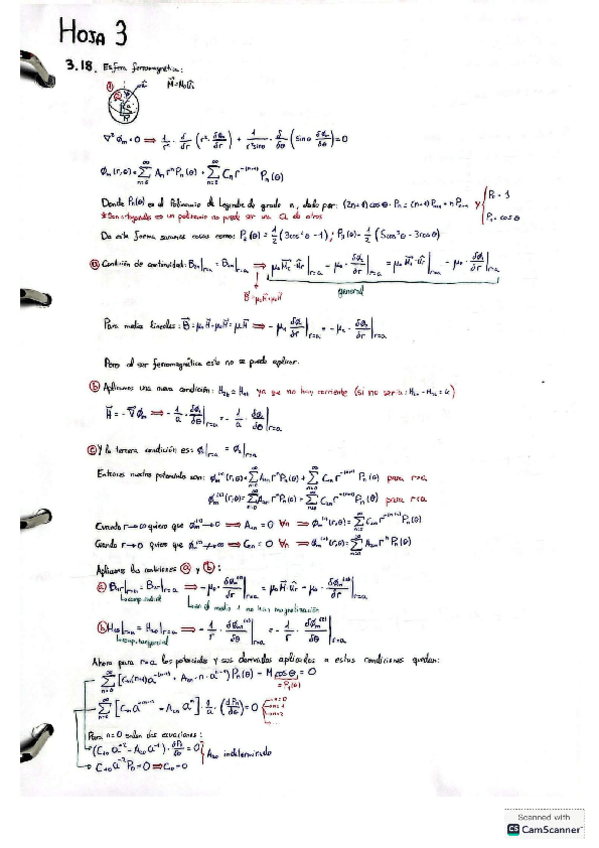 HOJA 3
3.18. Esfera ferromagnética:
M⃗ = M₀ u⃗z
∇²ϕm = 0 ⟹ 1/r² · δ/δr (r² · δϕm/δr) + 1/(r² sinθ) · δ/δθ (sinθ δϕm/δθ) = 0
ϕm(r,θ) = Σ_{n=0}^∞ An rⁿ Pn(θ) + Σ_{n=0}^∞ Cn r^{-(n+1)} Pn(θ)
Donde Pn(θ) es el Polinomio de Legendre de grado n, dado por: (2n+1) cosθ · Pn = (n+1) Pn+1 + n Pn-1 y { P₀ = 1
P₁ = cosθ
De esta forma sacamos cosas como: P₂(θ) = 1/2 (3cos²θ - 1); P₃(θ) = 1/2 (5cos³θ - 3cosθ)
ⓐ Condición de continuidad: B2n|r=a = B1n|r=a ⟹ μ₀ M⃗₂ · u⃗r|r=a - μ₀ · δϕ₂/δr|r=a = μ₀ M⃗₁ · u⃗r|r=a - μ₀ · δϕ₁/δr|r=a
general
B⃗ = μ₀M⃗ + μ₀H⃗
Para medios lineales: B⃗ = μ₀M⃗ + μ₀H⃗ = μH⃗ ⟹ -μ₂ δϕ₂/δr|r=a = -μ₁ · δϕ₁/δr|r=a
Pero al ser ferromagnética esto no se puede aplicar.
ⓑ Aplicamos una nueva condición: H2t = H1t ya que no hay corriente (si no sería: H2t - H1t = k)
H⃗ = -∇⃗ϕm ⟹ -1/a · δϕ₂/δθ|r=a = -1/a · δϕ₁/δθ|r=a
ⓒ Y la tercera condición es: ϕ₁|r=a = ϕ₂|r=a
Entonces nuestros potenciales son: ϕm⁽¹⁾(r,θ) = Σ_{n=0}^∞ A1n rⁿ Pn(θ) + Σ_{n=0}^∞ C1n r^{-(n+1)} Pn(θ) para r>a
ϕm⁽²⁾(r,θ) = Σ_{n=0}^∞ A2n rⁿ Pn(θ) + Σ_{n=0}^∞ C2n r^{-(n+1)} Pn(θ) para r<a
Cuando r→∞ quiero que ϕm⁽¹⁾→0 ⟹ A1n = 0 ∀n ⟹ ϕm⁽¹⁾(r,θ) = Σ_{n=0}^∞ C1n r^{-(n+1)} Pn(θ)
Cuando r→0 quiero que ϕm⁽²⁾↛∞ ⟹ C2n = 0 ∀n ⟹ ϕm⁽²⁾(r,θ) = Σ_{n=0}^∞ A2n rⁿ Pn(θ)
Aplicamos las condiciones ⓐ y ⓑ:
ⓐ B1r|r=a = B2r|r=a ⟹ -μ₀ · δϕm⁽¹⁾/δr|r=a = μ₀ M⃗ · u⃗r - μ₀ · δϕm⁽²⁾/δr|r=a
en el medio 1 no hay magnetización
ⓑ H1θ|r=a = H2θ|r=a ⟹ -1/r · δϕm⁽¹⁾/δθ|r=a = -1/r · δϕm⁽²⁾/δθ|r=a
Ahora para r=a los potenciales y sus derivadas aplicados a estas condiciones quedan:
Σ_{n=0}^∞ [C1n(n+1)a^{-(n+2)} + A2n · n · a^{n-1}] Pn(θ) - M cosθ = 0
= P₁(θ)
Σ_{n=0}^∞ [C1n a^{-(n+1)} - A2n aⁿ] · 1/a · (dPn/dθ) = 0 { n=0
n=1
n=2
...
Para n=0 salen dos ecuaciones:
(C10 a⁻² - A20 a⁻¹) · dP₀/dθ = 0 } A20 indeterminado
C10 a⁻² P₀ = 0 ⟹ C10 = 0
Scanned with
CS CamScanner